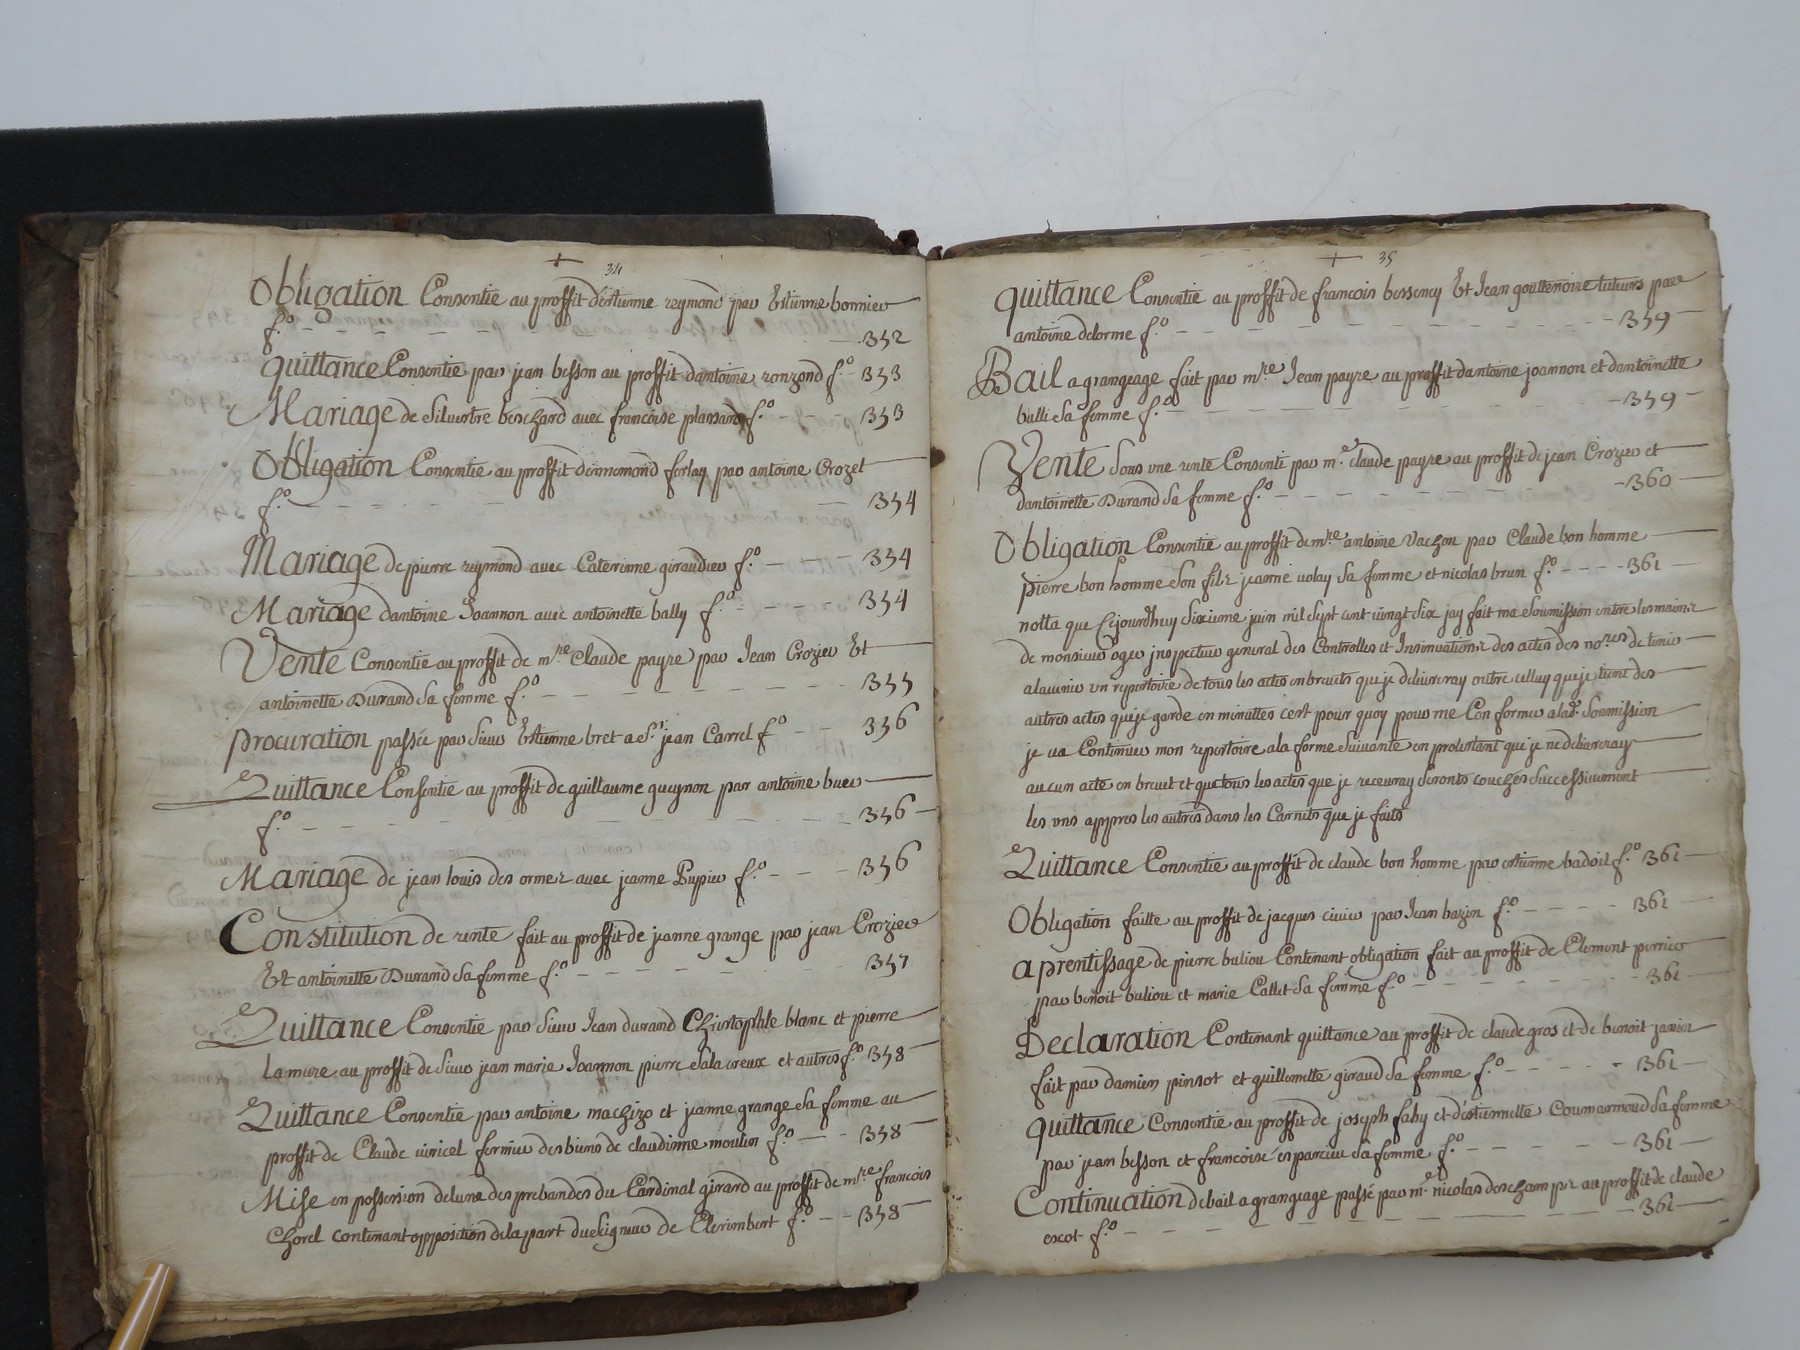 34
Obligation Consentie au proffit d'estienne reymond par Estienne bonnier
f.o 352
quittance Consentie par jean besson au proffit dantoine ronzond f.o 353
Mariage de Silvestre beschard avec françoise plassard f.o 353
Obligation Consentie au proffit dennemond ferlay par antoine Crozet
f.o 354
Mariage de pierre reymond avec Caterinne giraudier f.o 354
Mariage dantoine Joannon avec antoinette bally f.o 354
Vente Consentie au proffit de m.re Claude payre par Jean Crozier Et
antoinette Durand Sa femme f.o 355
procuration passée par Sieur Estienne bret a S.r jean Carrel f.o 356
Quittance Consentie au proffit de guillaume gueynon par antoine buer
f.o 356
Mariage de jean louis des ormes avec jeanne Pupier f.o 356
Constitution de rente fait au proffit de jeanne grange par jean Crozier
Et antoinette Durand Sa femme f.o 357
Quittance Consentie par Sieur Jean durand Christophle blanc et pierre
Lamure au proffit de Sieur jean marie Joannon pierre Salacroux et autres f.o 358
Quittance Consentie par antoine machizo et jeanne grange Sa femme au
proffit de Claude viricel fermier des biens de claudinne moulin f.o 358
Mise en possession delune des prebandes du Cardinal girard au proffit de m.re françois
Chorel contenant opposition dela part du Seigneur de Clerimbert f.o 358
35
quittance Consentie au proffit de françois bessency Et Jean gouttenoire tuteurs par
antoine delorme f.o 359
Bail a grangeage fait par m.re Jean payre au proffit dantoine joannon et dantoinette
bulli Sa femme f.o 359
Vente Sous une rente Consenti par m.e claude payre au proffit de jean Crozier et
dantoinette Durand Sa femme f.o 360
Obligation Consentie au proffit de m.re antoine Vachon par Claude bon homme
pierre bon homme Son fils jeanne volay Sa femme et nicolas brun f.o 361
notta que Cejourdhuy Sixieme juin mil Sept cent vingt Six jay fait ma Soumission entre les mains
de monsieur oger jnspecteur general des Controlles et Insinuations des actes des no.res de tenir
alavenir un repertoire de tous les actes en brevets que je delivreray outre celluy que je tient des
autres actes que je garde en minuttes cest pour quoy pour me Conformer a lad. Soumission
je va Continuer mon repertoire a la forme Suivante en protestant que je ne delivreray
aucun acte en brevet et que tous les actes que je recevray Seronts couchés Successivement
les uns appres les autres dans les Carnets que je faits
Quittance Consentie au proffit de claude bon homme par estienne badoil f.o 361
Obligation faitte au proffit de jacques civier par Jean bazin f.o 361
aprentissage de pierre buliou Contenant obligation fait au proffit de Clement perrier
par benoit buliou et marie Callet Sa femme f.o 361
Declaration Contenant quittance au proffit de claude gros et de benoit janin
fait par damien pinsot et guillemette giraud Sa femme f.o 361
quittance Consentie au proffit de joseph fahy et d'estiennette Coumarmond Sa femme
par jean besson et françoise esparcieu Sa femme f.o 361
Continuation de bail a grangeage passé par m.e nicolas deschamps au proffit de claude
escot f.o 361